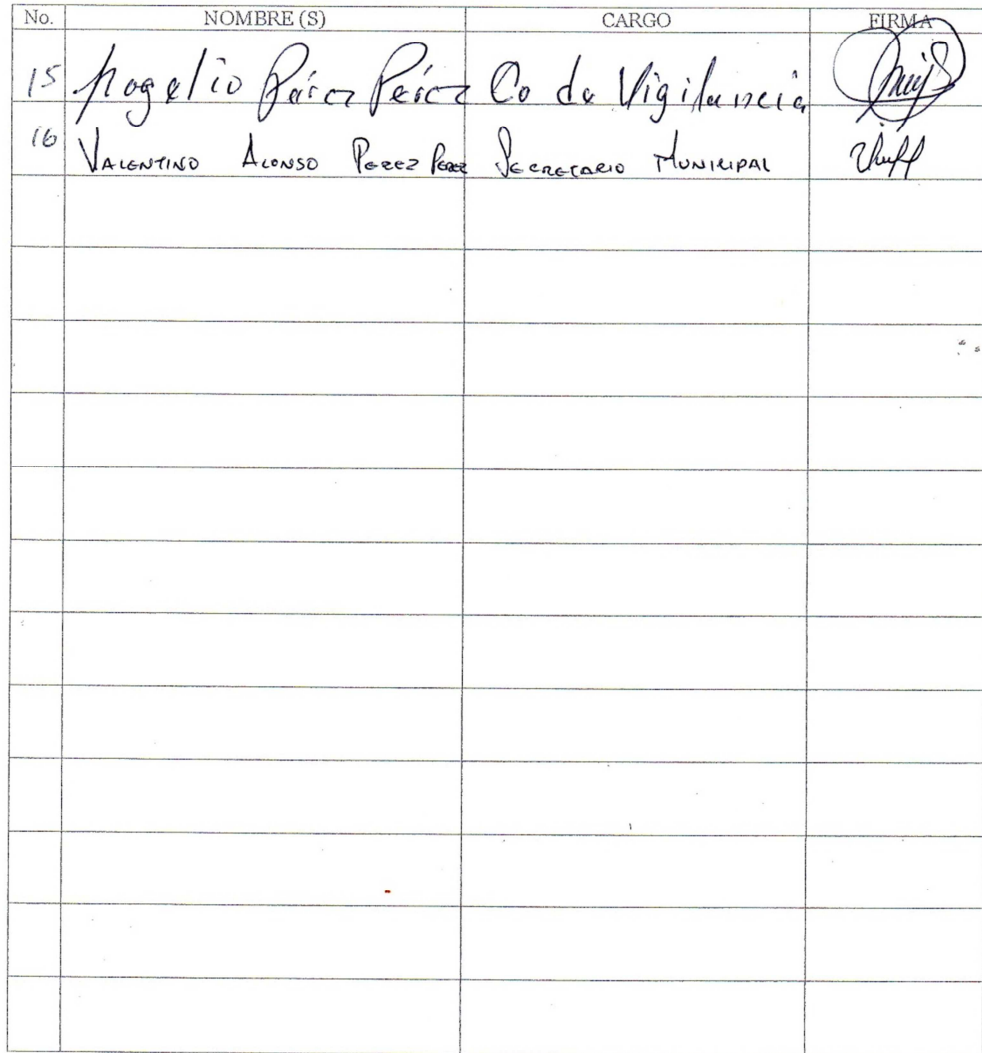 No. NOMBRE (S) CARGO FIRMA
15 Rogelio Pérez Pérez Co de Vigilancia
16 VALENTINO ALONSO PEREZ PEREZ SECRETARIO MUNICIPAL